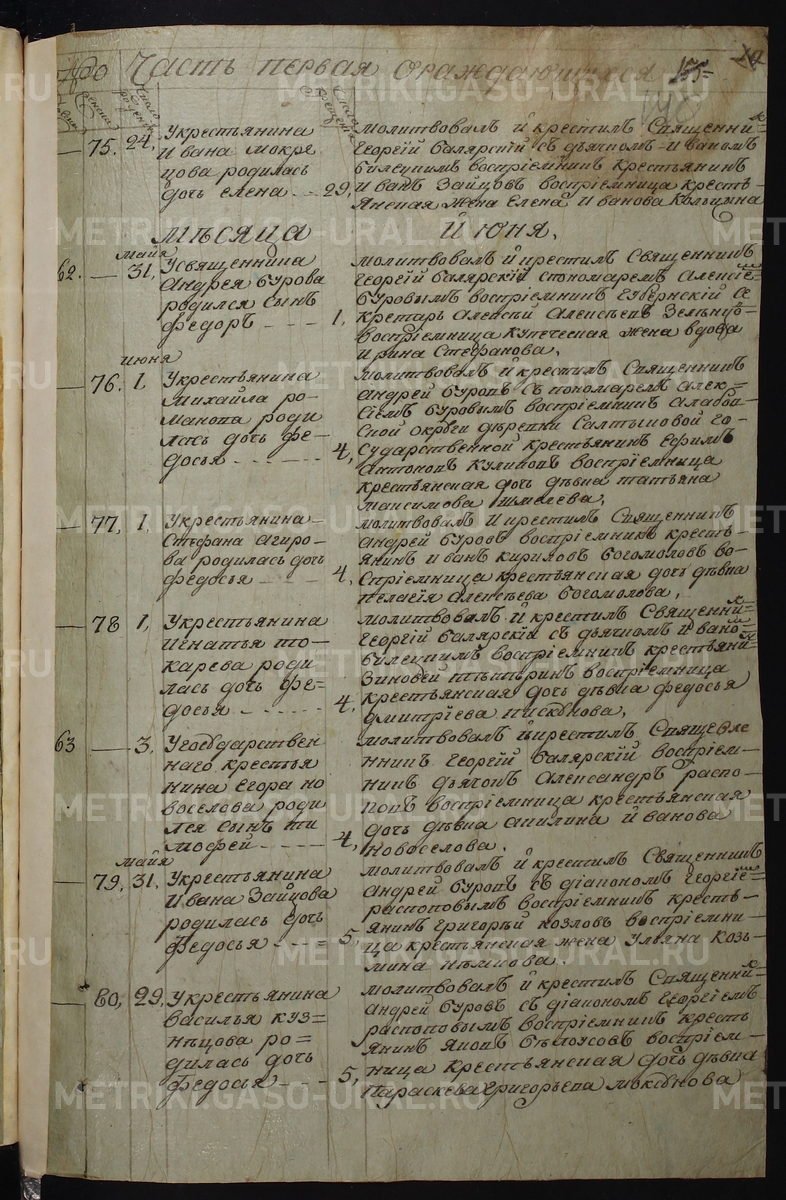 Часть первая ораждающихся 155
75. 24, Укрестьянина
Ивана Мокре
цова родилась
дочь елена 29,
молитвовалъ и крестилъ Священни=къ
Георгий Балярский съ дьячкомъ Иваномъ
Билецкимъ воспрiемникъ крестьянинъ
Иванъ Зайцовъ воспрiемница кресть
янская жена Елена Иванова Кольцына
Мѣсяца Июня.
майя
62. 31, Усвященника
Андрея Бурова
родился сынъ
федоръ 1,
молитвовалъ и крестилъ Священникъ
Георгiй Балярскiй спономаремъ Алексiе=мъ
Буровымъ воспрiемникъ Губернский се
кретарь Алексѣй Алексѣевъ
воспрiемница купеческая жена вдова
Ирина Стефанова.
июня
76. 1. Укрестьянина
Михайла ро
манова роди
лась дочь фе
досья 4,
молитвовалъ и крестилъ Священникъ
Андрей Буровъ съ пономаремъ Алек=
сѣемъ Буровымъ воспрiемникъ
деревни Салтыковой го
сударственной крестьянинъ Ефимъ
Антоновъ Куликовъ воспрiемница
крестьянская дочь дѣвка татьяна
максимова шмелева,
77, 1, Укрестьянина
Стефана Агиро
ва родилась дочь
федосья 4,
молитвовалъ и крестилъ Священникъ
Андрей Буровъ воспрiемникъ кресть
янинъ иванъ кириловъ богомоловъ во
спрiемница крестьянская дочь дѣвка
пелагiя Алексѣева богомолова,
78 1, Укрестьянина
игнатья то
карева роди
лась дочь фе=
досья 4,
молитвовалъ и крестилъ Священни=къ
Георгiй Балярскiй съ дьячкомъ Ивано=мъ
Билецкимъ воспрiемникъ крестьяни=нъ
Зиновей воспрiемница
крестьянская дочь дѣвка федосья
дмитрiева пискунова,
63 3. Угосударствен
наго крестья
нина Егора но
воселова роди
лся сынъ ти
мофей 4,
молитвовалъ и крестилъ Священ
никъ Георгiй Балярскiй воспрiем
никъ дьячокъ Александръ распо
повъ воспрiемница крестьянская
дочь дѣвка акилина иванова
новоселова.
майя
79, 31. Укрестьянина
Ивана Зайцова
родилась дочь
федосья 5,
молитвовалъ и крестилъ Священникъ
Андрей Буровъ съ дiакономъ Георгiе=мъ
распоповымъ воспрiемникъ кресть
янинъ григорьй козловъ воспрiемни
ца крестьянская жена Ульяна козь
мина
80, 29, Укрестьянина
василья куз=
нѣцова ро=
дилась дочь
федосья 5,
молитвовалъ и крестилъ Священни=къ
Андрей Буровъ съ дiакономъ Георгiемъ
распоповымъ воспрiемникъ кресть
янинъ яковъ бѣлоусовъ воспрiем
ница крестьянская дочь дѣвка
Параскева григорьева
METRIKI.GASO-URAL.RU